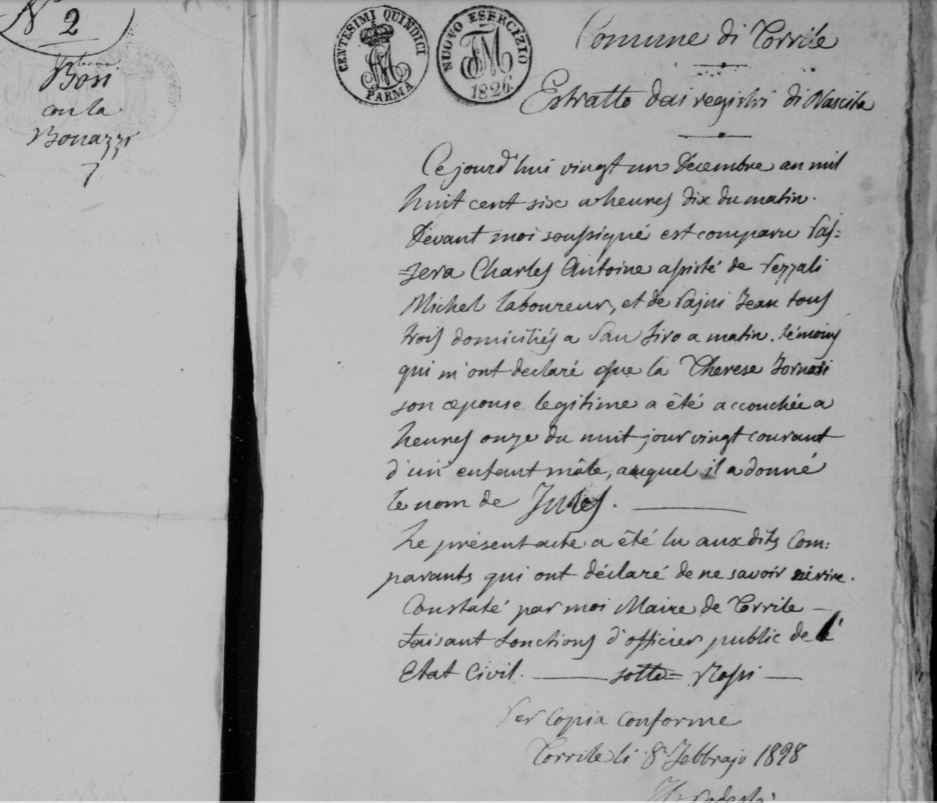 N 2
Bosi
con la
Bonazzi
CENTESIMI QUINDICI
PARMA
NUOVO ESERCIZIO
1826
Comune di Torrile
Estratto dai registri di Nascita
Ce jourd'hui vingt un Decembre an mil
huit cent six a heures dix du matin.
Devant moi soussigné est comparu Pas=
=sera Charles Antoine assisté de Pezzali
Michel laboureur, et de Pasini Jean tous
trois domiciliés a San Siro a matin. témoins
qui m'ont declaré que la Therese Fornari
son epouse legitime a été accouchée a
heures onze du nuit jour vingt courant
d'un enfant mâle, auquel il a donné
le nom de Jules.
Le présent acte a été lu aux dits Com=
parants qui ont déclaré de ne savoir écrire.
Constaté par moi Maire de Torrile
faisant fonctions d'officier public de l'
Etat Civil. sotto= Rossi
Per Copia Conforme
Torrile li 8 Febbrajo 1828
Il Podestà